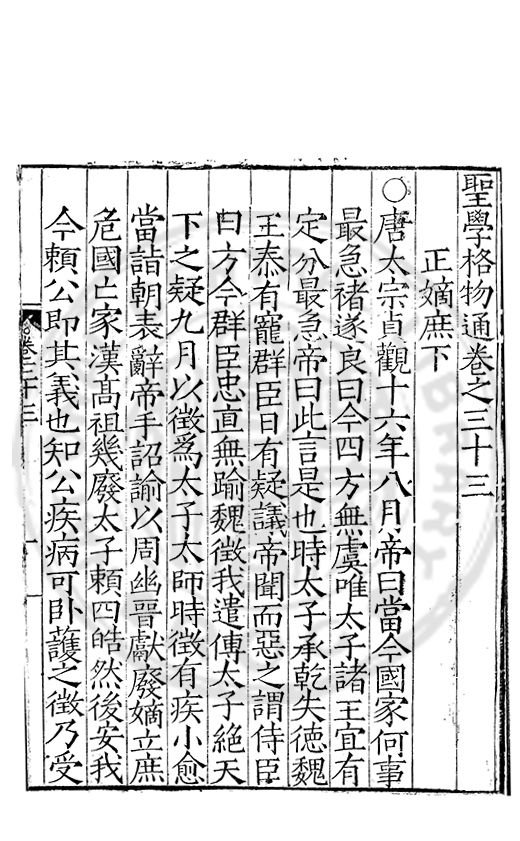 聖學格物通卷之三十三
正嫡庶下
○唐太宗貞觀十六年八月帝曰當今國家何事
最急禇遂良曰今四方無虞唯太子諸王宜有
定分最急帝曰此言是也時太子承乾失德魏
王泰有寵群臣日有疑議帝聞而惡之謂侍臣
曰方今群臣忠直無踰魏徵我遣傅太子絕天
下之疑九月以徵爲太子太師時徵有疾小愈
當詣朝表辭帝手詔諭以周幽晉獻廢嫡立庶
危國亡家漢髙祖幾廢太子賴四皓然後安我
今賴公即其義也知公疾病可卧護之徵乃受
卷三十三
一